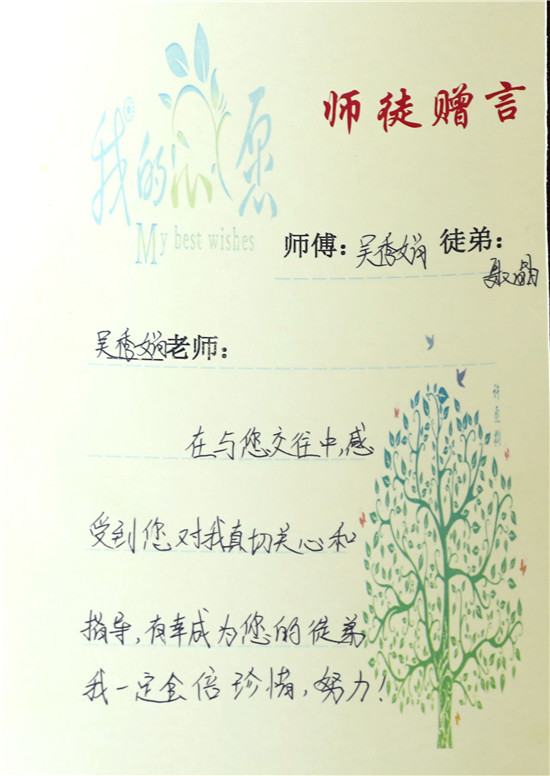 师徒赠言
我的心愿
My best wishes
师傅：吴秀娴 徒弟：
聂晶
吴秀娴老师：
许愿树
在与您交往中,感
受到您对我真切关心和
指导,有幸成为您的徒弟
我一定会倍珍惜,努力!